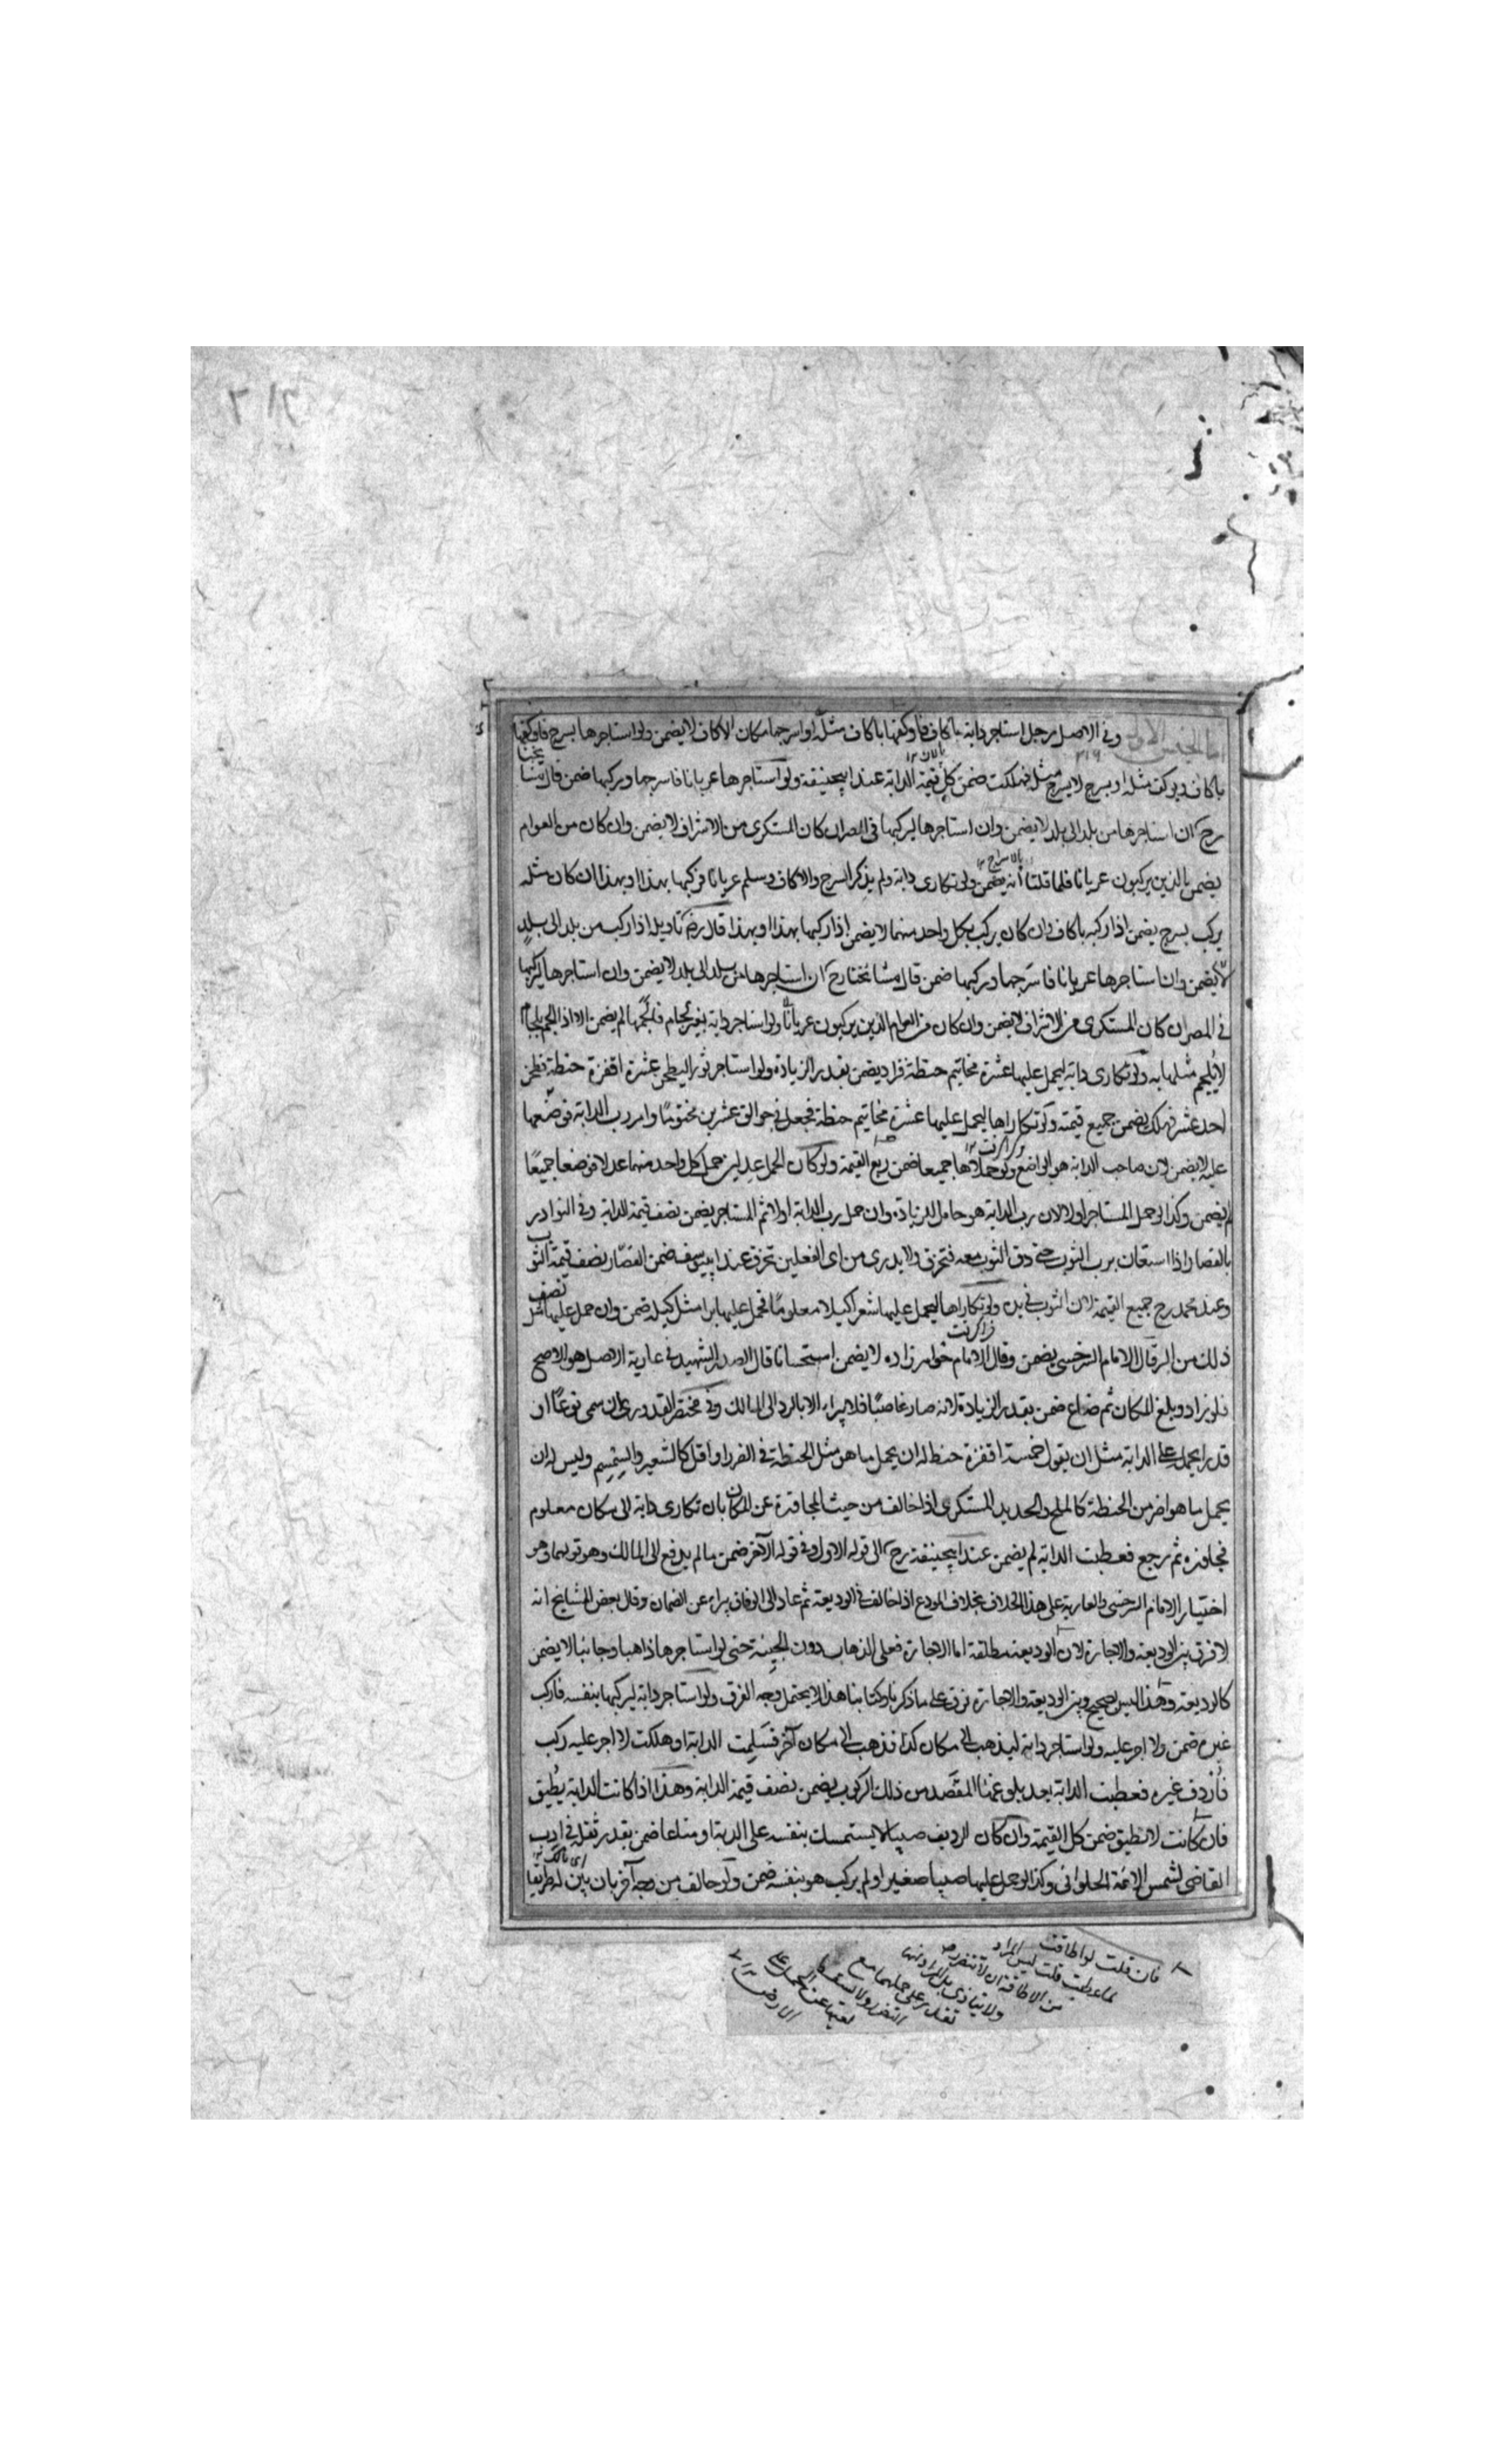 اما الجنس الاول وفي الاصل رجل استاجر دابة باكاف فاوكفها باكاف مثله او اسرجها مكان الاكاف لا يضمن ولو استاجرها بسرج فاوكفها
باكاف يوكف مثله او بسرج لا يسرج مثله فهلكت ضمن كل قيمة الدابة عند ابيحنيفة ولو استاجرها عريانا فاسرجها وركبها ضمن قال مشايخنا
رح ان استاجرها من بلد الى بلد لا يضمن وان استاجرها ليركبها في المصر ان كان المستكرى من الاشراف لا يضمن وان كان من العوام
يضمن الذين يركبون عريانا فلما قلنا انه يضمن ولو تكارى دابة ولم يذكر السرج والاكاف وسلم عريانا فركبها بهذا او بهذا ان كان مثله
يركب بسرج يضمن اذا ركبه باكاف وان كان يركب بكل واحد منهما لا يضمن اذا ركبها بهذا او بهذا قال رض تاويله اذا ركب من بلد الى بلد
لا يضمن وان استاجرها عريانا فاسرجها وركبها ضمن قال مشائخنا رح ان استاجرها من بلد الى بلد لا يضمن وان استاجرها ليركبها
في المصر ان كان المستكرى من الاشراف لا يضمن وان كان من العوام الذين يركبون عريانا ولو استاجر دابة بغير لجام فالجمها لم يضمن الا اذا الجم بلجام
لا يلجم مثلها به ولو تكارى دابة ليحمل عليها عشرة مخاتيم حنطة فزاد يضمن بقدر الزيادة ولو استاجر ثورا ليطحن عشرة اقفزة حنطة فطحن
احد عشر فهلك يضمن جميع قيمته ولو تكاراها ليحمل عليها عشرة مخاتيم حنطة فجعل في جوالق عشرين مختوما وامر رب الدابة فوضعها
عليه لا يضمن لان صاحب الدابة هو الواضع ولو حملاها جميعا ضمن ربع القيمة ولو كان الحمل عدلين حمل كل واحد منهما عدلا فوضعا جميعا
لم يضمن وكذا لو حمل المستاجر اولا لان رب الدابة هو حامل للزيادة وان حمل رب الدابة اولا ثم المستاجر يضمن نصف قيمة الدابة وفي النوادر
بالقصار اذا استعان برب الثوب حتى دق الثوب معه فتخرق ولا يدرى من اى الفعلين تخرق عند ابييوسف ضمن القصار نصف قيمة الثوب
وعند محمد رح جميع القيمة لان الثوب في يده ولو تكاراها ليحمل عليها شعيرا كيلا معلوما فحمل عليها برا مثل كيله ضمن وان حمل عليها نصف
ذلك من البر قال الامام السرخسى يضمن وقال الامام خواهر زاده لا يضمن استحسانا قال الصدر الشهيد في عارية الاصل هو الاصح
فلو زاد وبلغ المكان ثم ضاع ضمن بقدر الزيادة لانه صار غاصبا فلا يبراء الا بالرد الى المالك وفي مختصر القدورى ان سمى نوعا او
قدرا يحمل على الدابة مثل ان يقول خمسة اقفزة حنطة له ان يحمل ما هو مثل الحنطة في الضرر او اقل كالشعير والسمسم وليس له ان
يحمل ما هو اضر من الحنطة كالملح والحديد المستكرى اذا خالف من حيث المجاوزة عن المكان بان تكارى دابة الى مكان معلوم
فجاوزه ثم رجع فعطبت الدابة لم يضمن عند ابيحنيفة رح في قوله الاول وفي قوله الآخر ضمن ما لم يدفع الى المالك وهو قولهما وهو
اختيار الامام السرخسى والعارية على هذا الخلاف بخلاف المودع اذا خالف في الوديعة ثم عاد الى الوفاق يبراء عن الضمان وقال بعض المشايخ انه
لا فرق بين الوديعة والاجارة لان الوديعة مطلقة اما الاجارة فعلى الذهاب دون المجيئة حتى لو استاجرها ذاهبا وجائيا لا يضمن
كالوديعة وهذا ليس بصحيح وبين الوديعة والاجارة فرق على ما ذكرنا وكتابنا هذا لا يحتمل وجه الفرق ولو استاجر دابة ليركبها بنفسه فاركب
غيره ضمن ولا اجر عليه ولو استاجر دابة ليذهب الى مكان كذا فذهب الى مكان آخر فسلمت الدابة او هلكت لا اجر عليه ركب
فاردف غيره فعطبت الدابة بعد بلوغها المقصد من ذلك الركوب يضمن نصف قيمة الدابة وهذا اذا كانت الدابة يطيق
فان كانت لا تطيق ضمن كل القيمة وان كان الرديف صبيا لا يستمسك بنفسه على الدابة او متاعا ضمن بقدر ثقله في ادب
القاضى لشمس الائمة الحلوانى وكذا لو حمل عليها صبيا صغيرا ولم يركب هو بنفسه ضمن ولو خالف من وجه آخر بان بين له طريقا
فان قلت لو اطاقت
لما عطبت قلت ليس المراد
من الاطاقة ان لا تتضرر
ولا يتاذى بل المراد انها
تقدر على حملهما مع
التضرر ولا